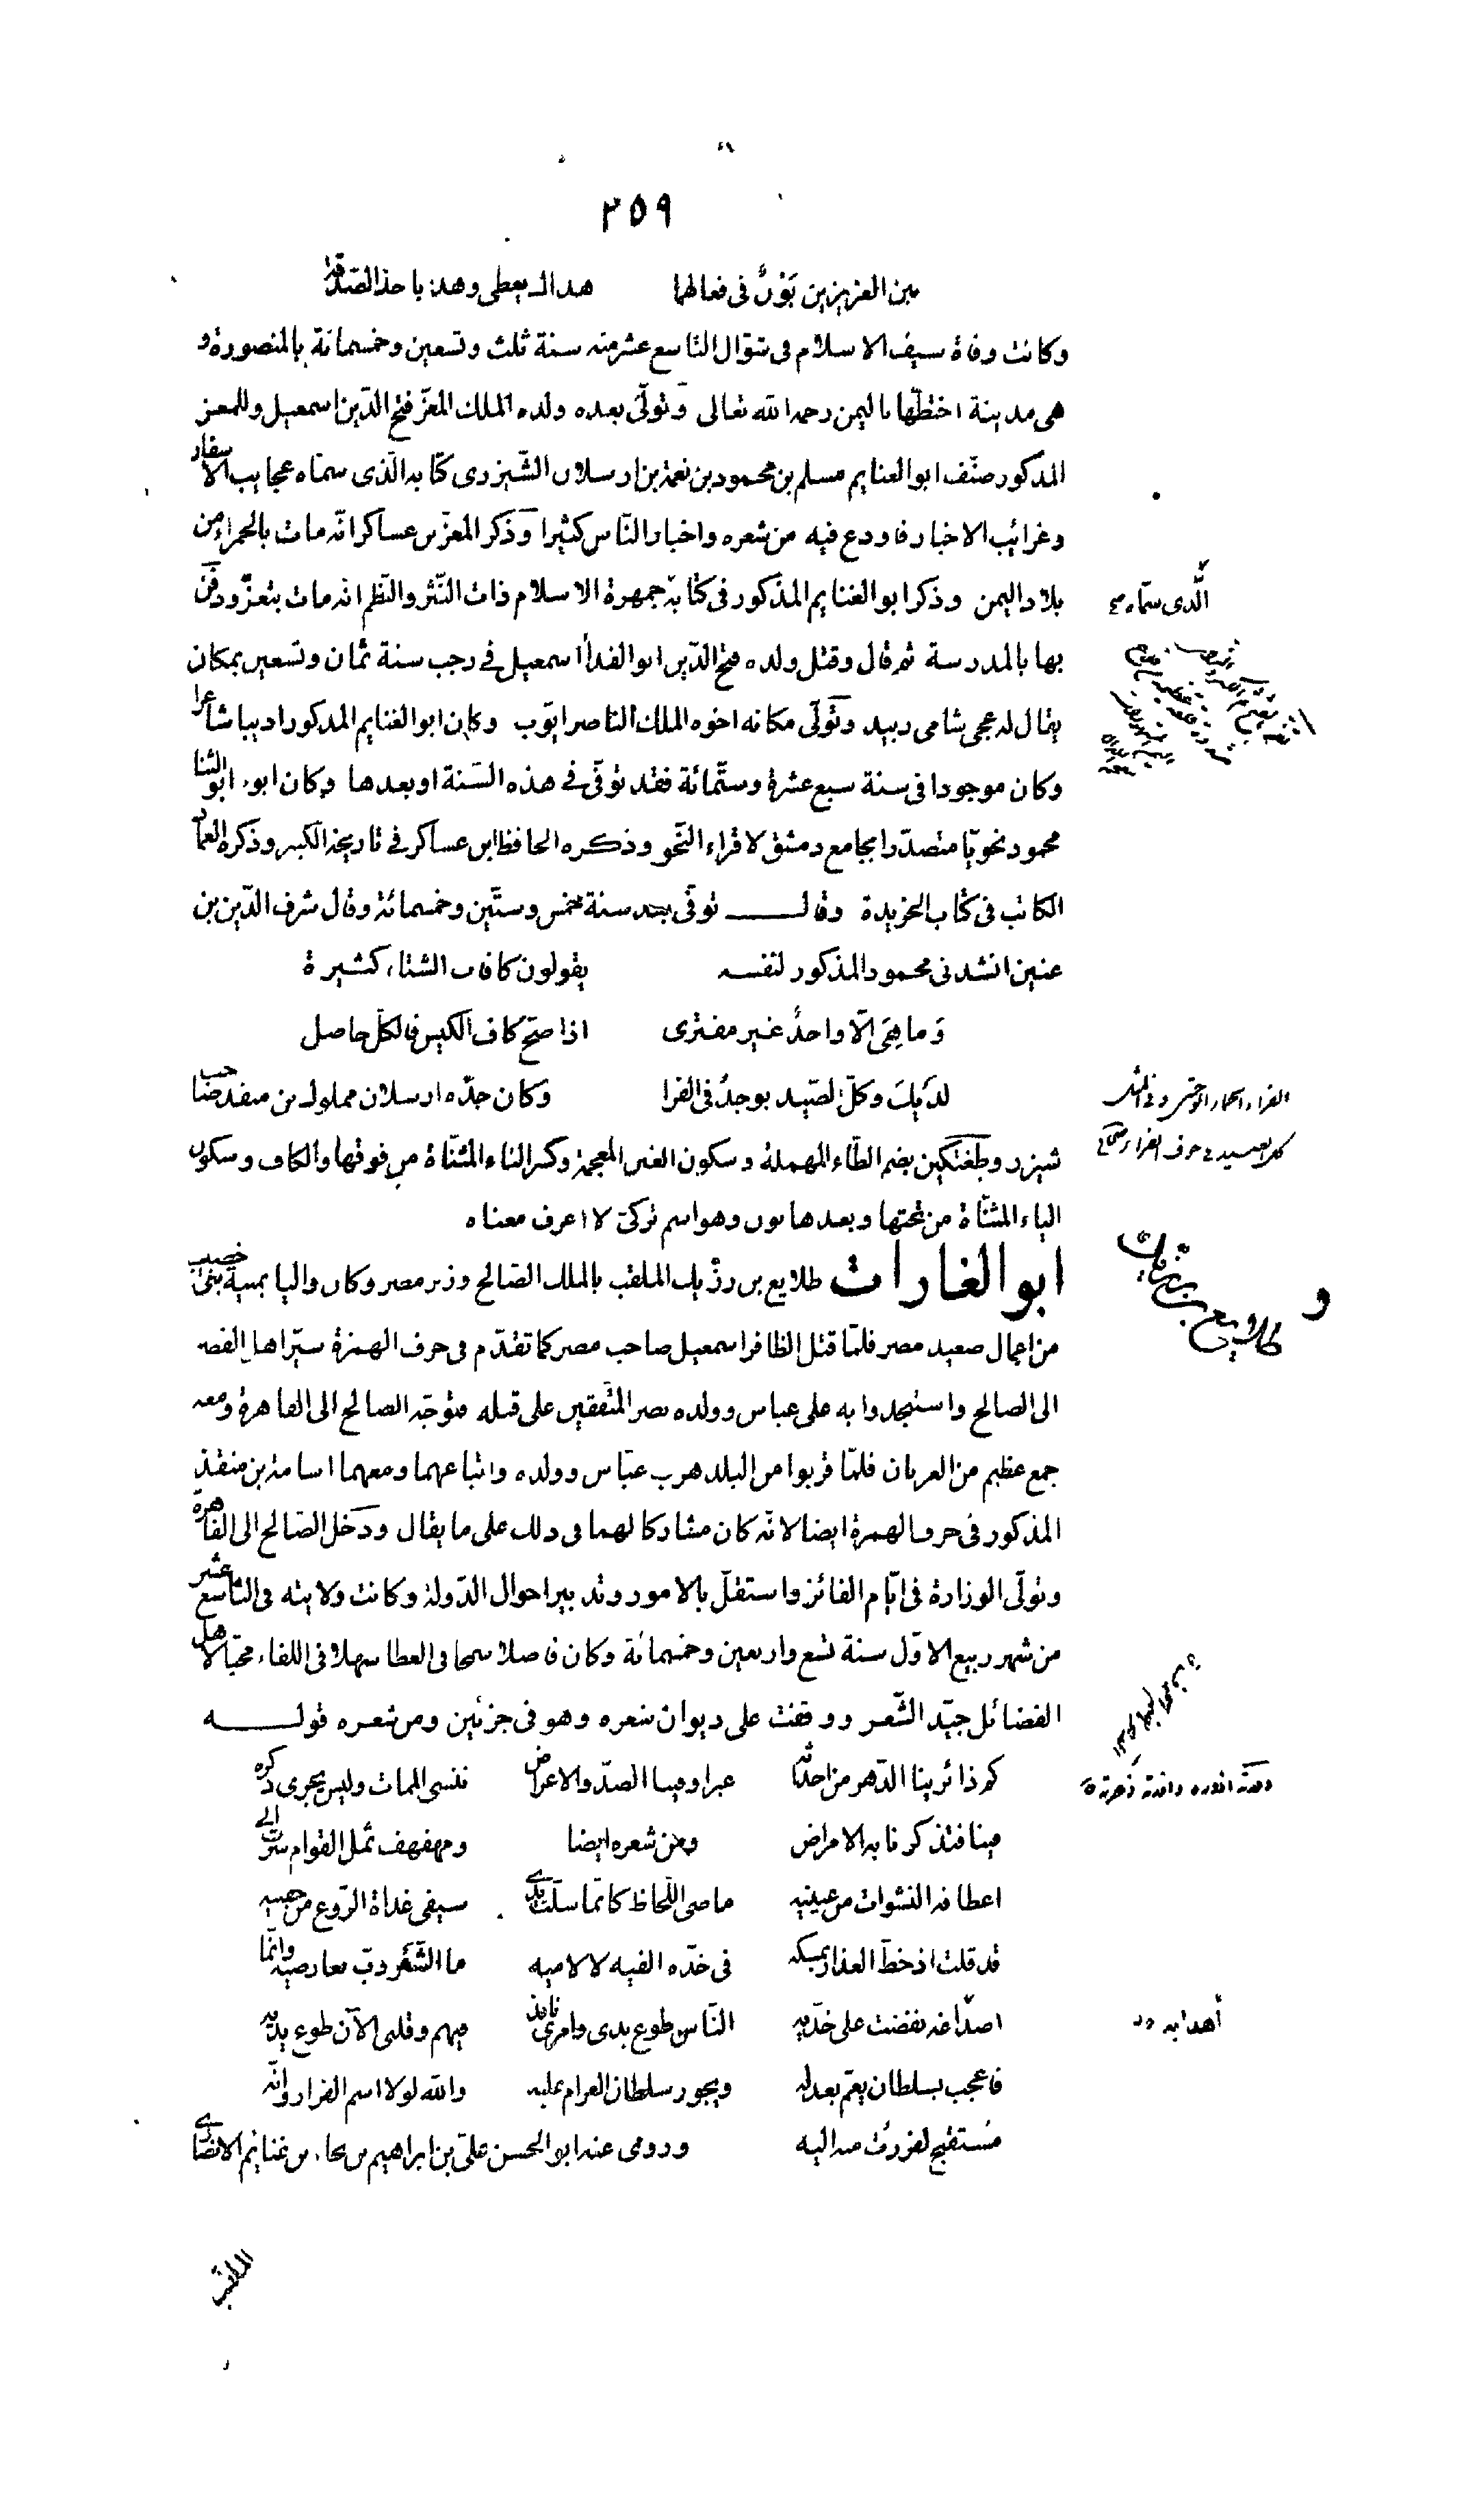 ٢٥٩
بين العزيزين بَوْنٌ فى فعالهما هذاك يعطى وهذا ياخذ الصّدقة
وكانت وفاة سيف الاسلام فى شوّال التاسع عشر منه سنة ثلث وتسعين وخمسمائة بالمنصورة و
هى مدينة اختطّها باليمن رحمه الله تعالى وتولّى بعده ولده الملك المعزّ فتح الدّين اسمعيل وللمعز
المذكور صنّف ابو الغنايم مسلم بن محمود بن نعمة بن ارسلان الشّيزرى كتابه الّذى سمّاه عجايب الاسفار
وغرائب الاخبار فاودع فيه من شعره واخبار النّاس كثيرا وذكر المعزّ بن عساكر انّه مات بالحمراء من
بلاد اليمن وذكر ابو الغنايم المذكور فى كتابه جمهرة الاسلام ذات النّثر والنّظم انه مات بتعزّ ودفن
بها بالمدرسة ثم قال وقتل ولده فتح الدّين ابو الفدا اسمعيل فى رجب سنة ثمان وتسعين بمكان
يقال له عجى شامى زبيد وتولّى مكانه اخوه الملك الناصر ايّوب وكان ابو الغنايم المذكور اديبا شاعرا
وكان موجودا فى سنة سبع عشرة وستّمائة فقد توفّى فى هذه السّنة او بعدها وكان ابو. ابو الثنا
محمود نحويّا متصدّرا بجامع دمشق لاقراء النّحو وذكره الحافظ ابن عساكر فى تاريخه الكبير وذكره العماد
الكاتب فى كتاب الخريدة وقال توفّى بعد سنة خمس وستّين وخمسمائة وقال شرف الدّين بن
عنين انشدنى محمود المذكور لنفسه يقولون كافات الشتاء كثيرة
وَما هِىَ الّا واحدٌ غير مفترى اذا صحّ كاف الكيس فالكلّ حاصل
لدَيك وكلّ الصّيد يوجدُ فى الفرا وكان جدّه ارسلان مملوك بن منقذ صاحب
شيزر وطغتكين بضم الطّاء المهملة وسكون الغين المعجمة وكسر التاء المثنّاة من فوقها والكاف وسكون
الياء المثنّاة من تحتها وبعدها نون وهو اسم تركىّ لا اعرف معناه
ابو الغارات طلايع بن رزّيك الملقب بالملك الصّالح وزير مصر وكان واليا بمنية بنى خصيب
من اعمال صعيد مصر فلمّا قتل الظافر اسمعيل صاحب مصر كما تقدّم فى حرف الهمزة سيّر اهل القصر
الى الصالح واستنجدوا به على عباس وولده نصر المتّفقين على قتله فتوجّه الصالح الى القاهرة ومعه
جمع عظيم من العربان فلمّا قربوا من البلد هرب عبّاس وولده واتباعهما ومعهما اسامة بن منقذ
المذكور فى حرف الهمزة ايضا لانّه كان مشاركا لهما فى ذلك على ما يقال ودخل الصّالح الى القاهرة
وتولّى الوزارة فى ايّام الفائز واستقلّ بالامور وتدبير احوال الدّولة وكانت ولايته فى التاسع عشر
من شهر ربيع الاوّل سنة تسع واربعين وخمسمائة وكان فاضلا سمحا فى العطا سهلا فى اللقاء محبّا لاهل
الفضائل جيّد الشّعر ووقفت على ديوان شعره وهو فى جزئين ومن شعره قوله
كم ذا ئرينا الدّهر من احداثه عبرا وفينا الصدّ والاعراض ننسى الممات وليس يجرى ذكره
فينا فتذكرنا به الامراض ومن شعره ايضا ومهفهف ثمل القوام سرت الى
اعطافه النشوات من عينيه ماضى اللّحاظ كانّما سلّت يدى سيفى غداة الرّوع من جفنيه
قد قلت اذ خطّ العذار بمسكه فى خدّه الفيه لا لاميه ما الشّعر دبّ بعارضيه وانّما
اصداغه نفضت على خدّيه النّاس طوع يدى وامرى نافذ فيهم وقلبى الآن طوع يديه
فاعجب بسلطان يعمّ بعدله ويجور سلطان الغرام عليه والله لولا اسم الفرار وانّه
مُستقبح لفررت منه اليه وروى عنه ابو الحسن علىّ بن ابراهيم بن نجاء بن غنائم الانصارى
الّذى سمّاه
طلايع بن رزيك
و
أهدابه
الملقب